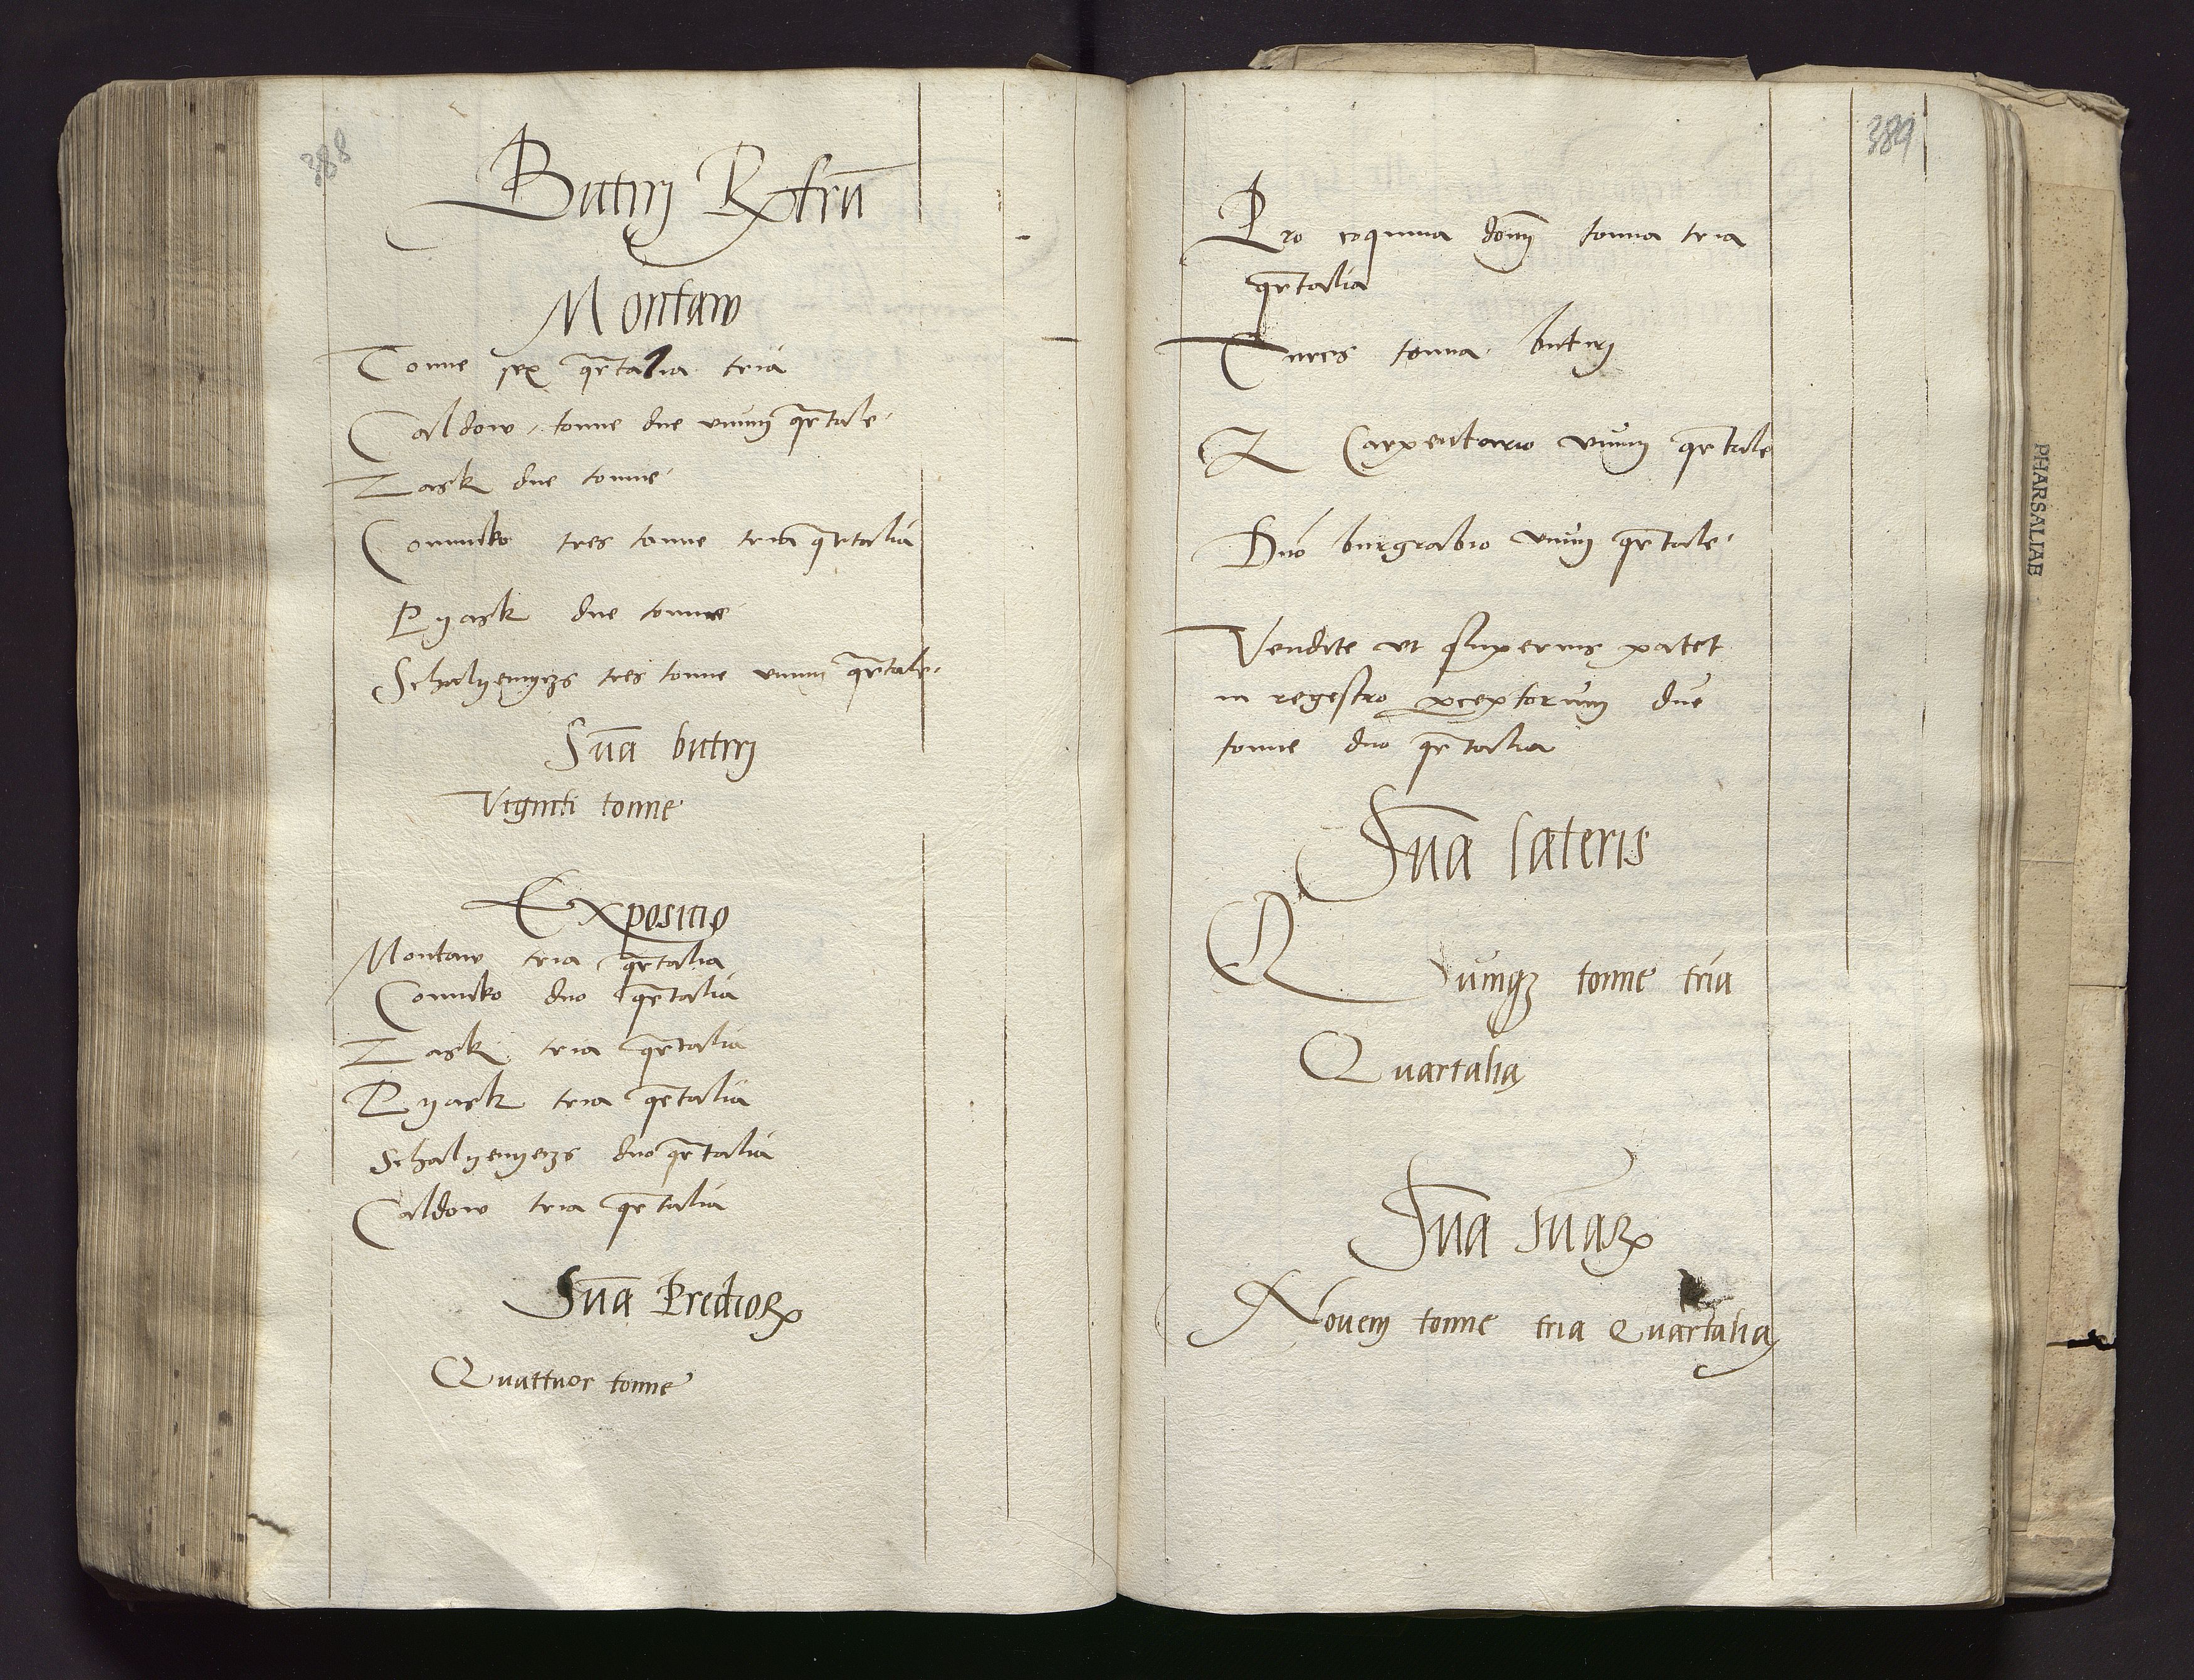 388
Butiri Rxstrū
Montaw
Tonne sex qrtalia tria
Caldow tonne due vnum qrtale
Zask due tonne
Connicko tres tonne tria qrtalia
Pyask due tonne
Schalyenyczs tres tonne vnum qrtale
Suā butiri
Viginti tonne
Expositio
Montaw tria qrtalia
Connicko duo qrtalia
Zask tria qrtalia
Pyask tria qrtalia
Schalyenyeczs duo qrtalia
Caldow tria qrtalia
Suā Predior
Quattuor tonne
389
Pro coquina domj tonna tria
qrtalia
tonna butiri
Carpentario vnum qrtale
Duo burgrabio vnum qrtale
Vendite vt superius patet
in regestro pceptorum due
tonne duo qrtalia
Suā lateris
Quinqȝ tonne tria
Quartalia
Suā suār
Novem tonne tria Quartalia
PHARSALIAE